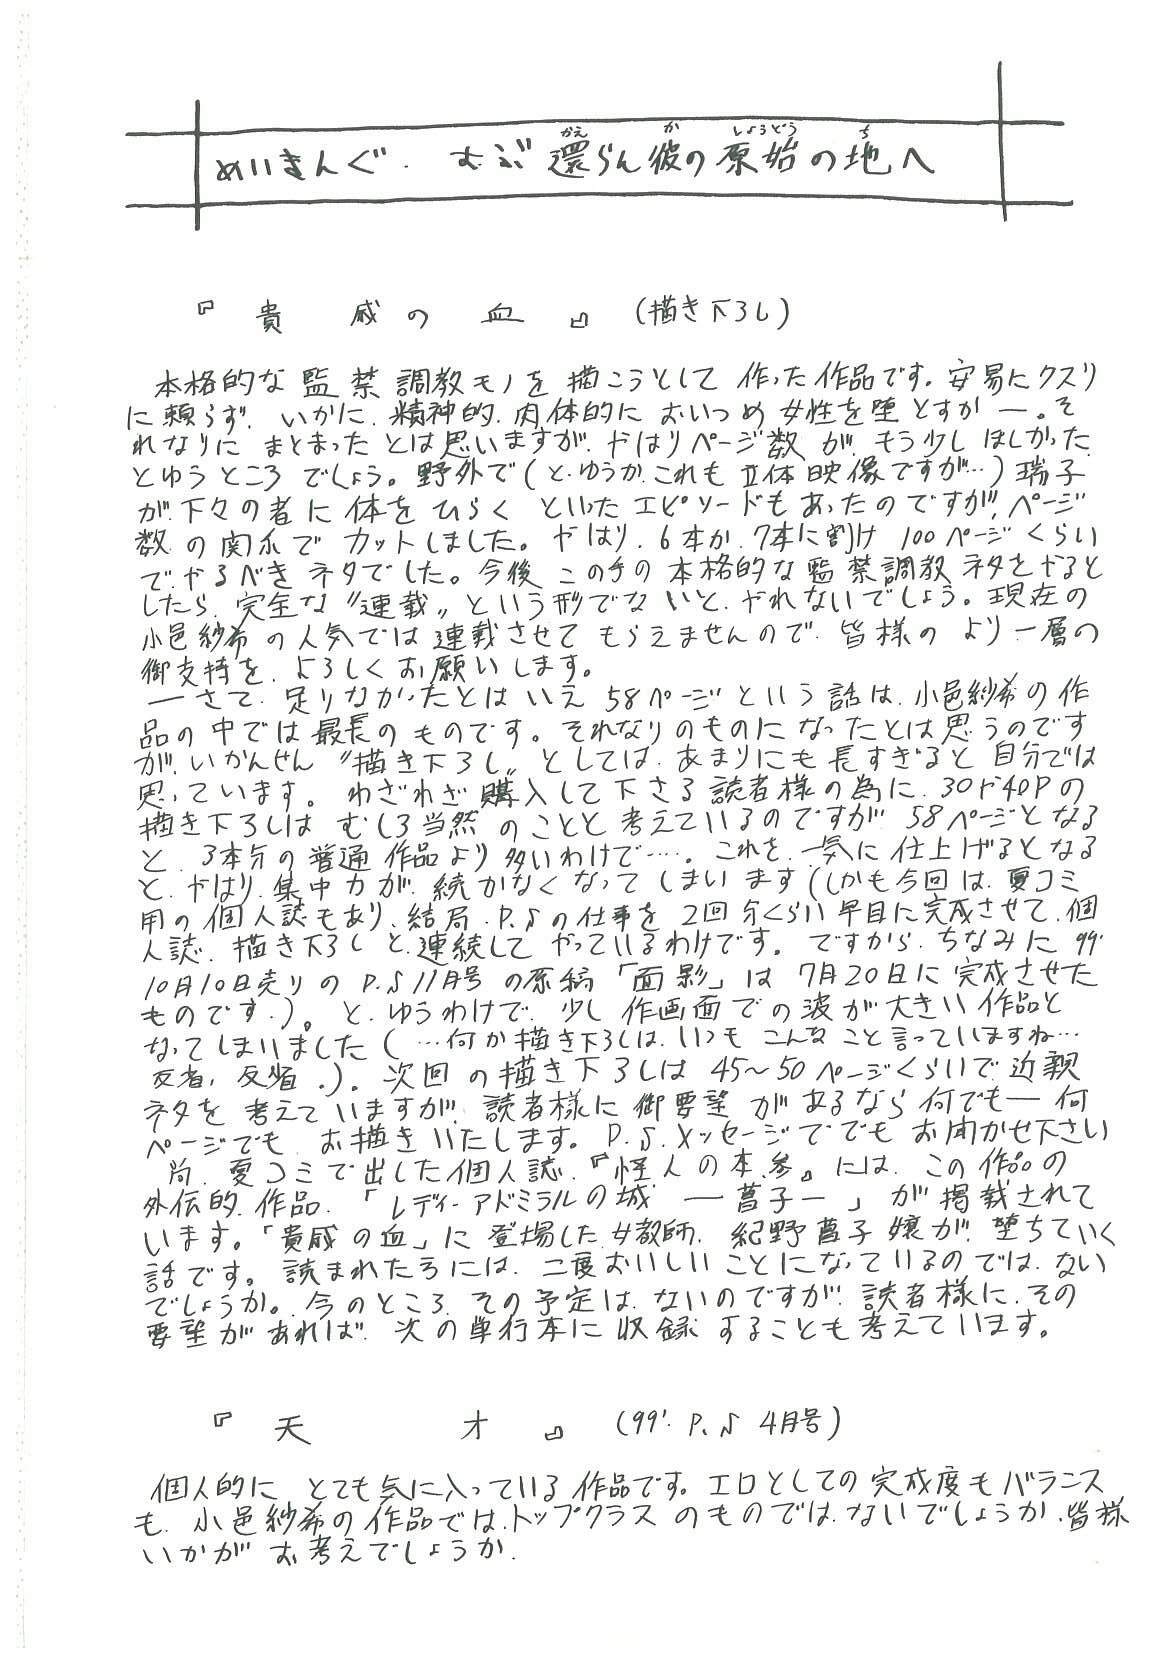 めいきんぐ．むぶ還らん彼の原始の地へ
かえ か しょうどう ち
『貴戚の血』(描き下ろし)
本格的な監禁調教モノを描こうとして作った作品です。安易にクスリ
に頼らず．いかに．精神的．肉体的においつめ女性を堕とすか―。そ
れなりにまとまったとは思いますが．やはりページ数が．もう少しほしかった．
とゆうところでしょう。野外で(と．ゆうか．これも立体映像ですが…)瑞子
が．下々の者に体をひらくといったエピソードもあったのですが．ページ
数の関係でカットしました。やはり．6本か．7本に割け100ページくらい
で．やるべきネタでした。今後この手の本格的な監禁調教ネタをやると
したら．完全な〝連載〟という形でないと．やれないでしょう。現在の
小邑紗希の人気では連載させてもらえませんので．皆様のより一層の
御支持を．よろしくお願いします。
―さて．足りなかったとはいえ58ページという話は．小邑紗希の作
品の中では最長のものです。それなりのものになったとは思うのです
が．いかんせん〝描き下ろし〟としては．あまりにも長すぎると自分では
思っています。わざわざ購入して下さる読者様の為に．30や40Pの
描き下ろしはむしろ当然のことと考えているのですが58ページとなる
と．3本分の普通作品より多いわけで…。これを．一気に仕上げるとなる
と．やはり．集中力が．続かなくなってしまいます(しかも今回は．夏コミ
用の個人誌もあり．結局．P.♪の仕事を2回分くらい早目に完成させて．個
人誌．描き下ろしと．連続してやっているわけです。ですから．ちなみに99'
10月10日売りのP.♪11月号の原稿「面影」は7月20日に完成させた
ものです．)。と．ゆうわけで．少し作画面での波が大きい作品と
なってしまいました(…何か描き下ろしは．いつもこんなこと言っていますね…
反省，反省．)。次回の描き下ろしは45～50ページくらいで近親
ネタを考えていますが．読者様に御要望があるなら何でも―何
ページでも．お描きいたします。P.♪.メッセージででもお聞かせ下さい
尚．夏コミで出した個人誌．『怪人の本．参』には．この作品の
外伝的．作品．「レディーアドミラルの城―菖子―」が掲載されて
います。「貴戚の血」に登場した女教師．紀野菖子嬢が．堕ちていく
話です。読まれた方には．二度おいしいことになっているのでは．ない
でしょうか。．今のところ．その予定は．ないのですが．読者様に．その
要望があれば．次の単行本に収録することも考えています。
『天才』(99'．P.♪4月号)
個人的にとても気に入っている作品です。エロとしての完成度もバランス
も．小邑紗希の作品では．トップクラスのものでは．ないでしょうか．皆様
いかがお考えでしょうか．